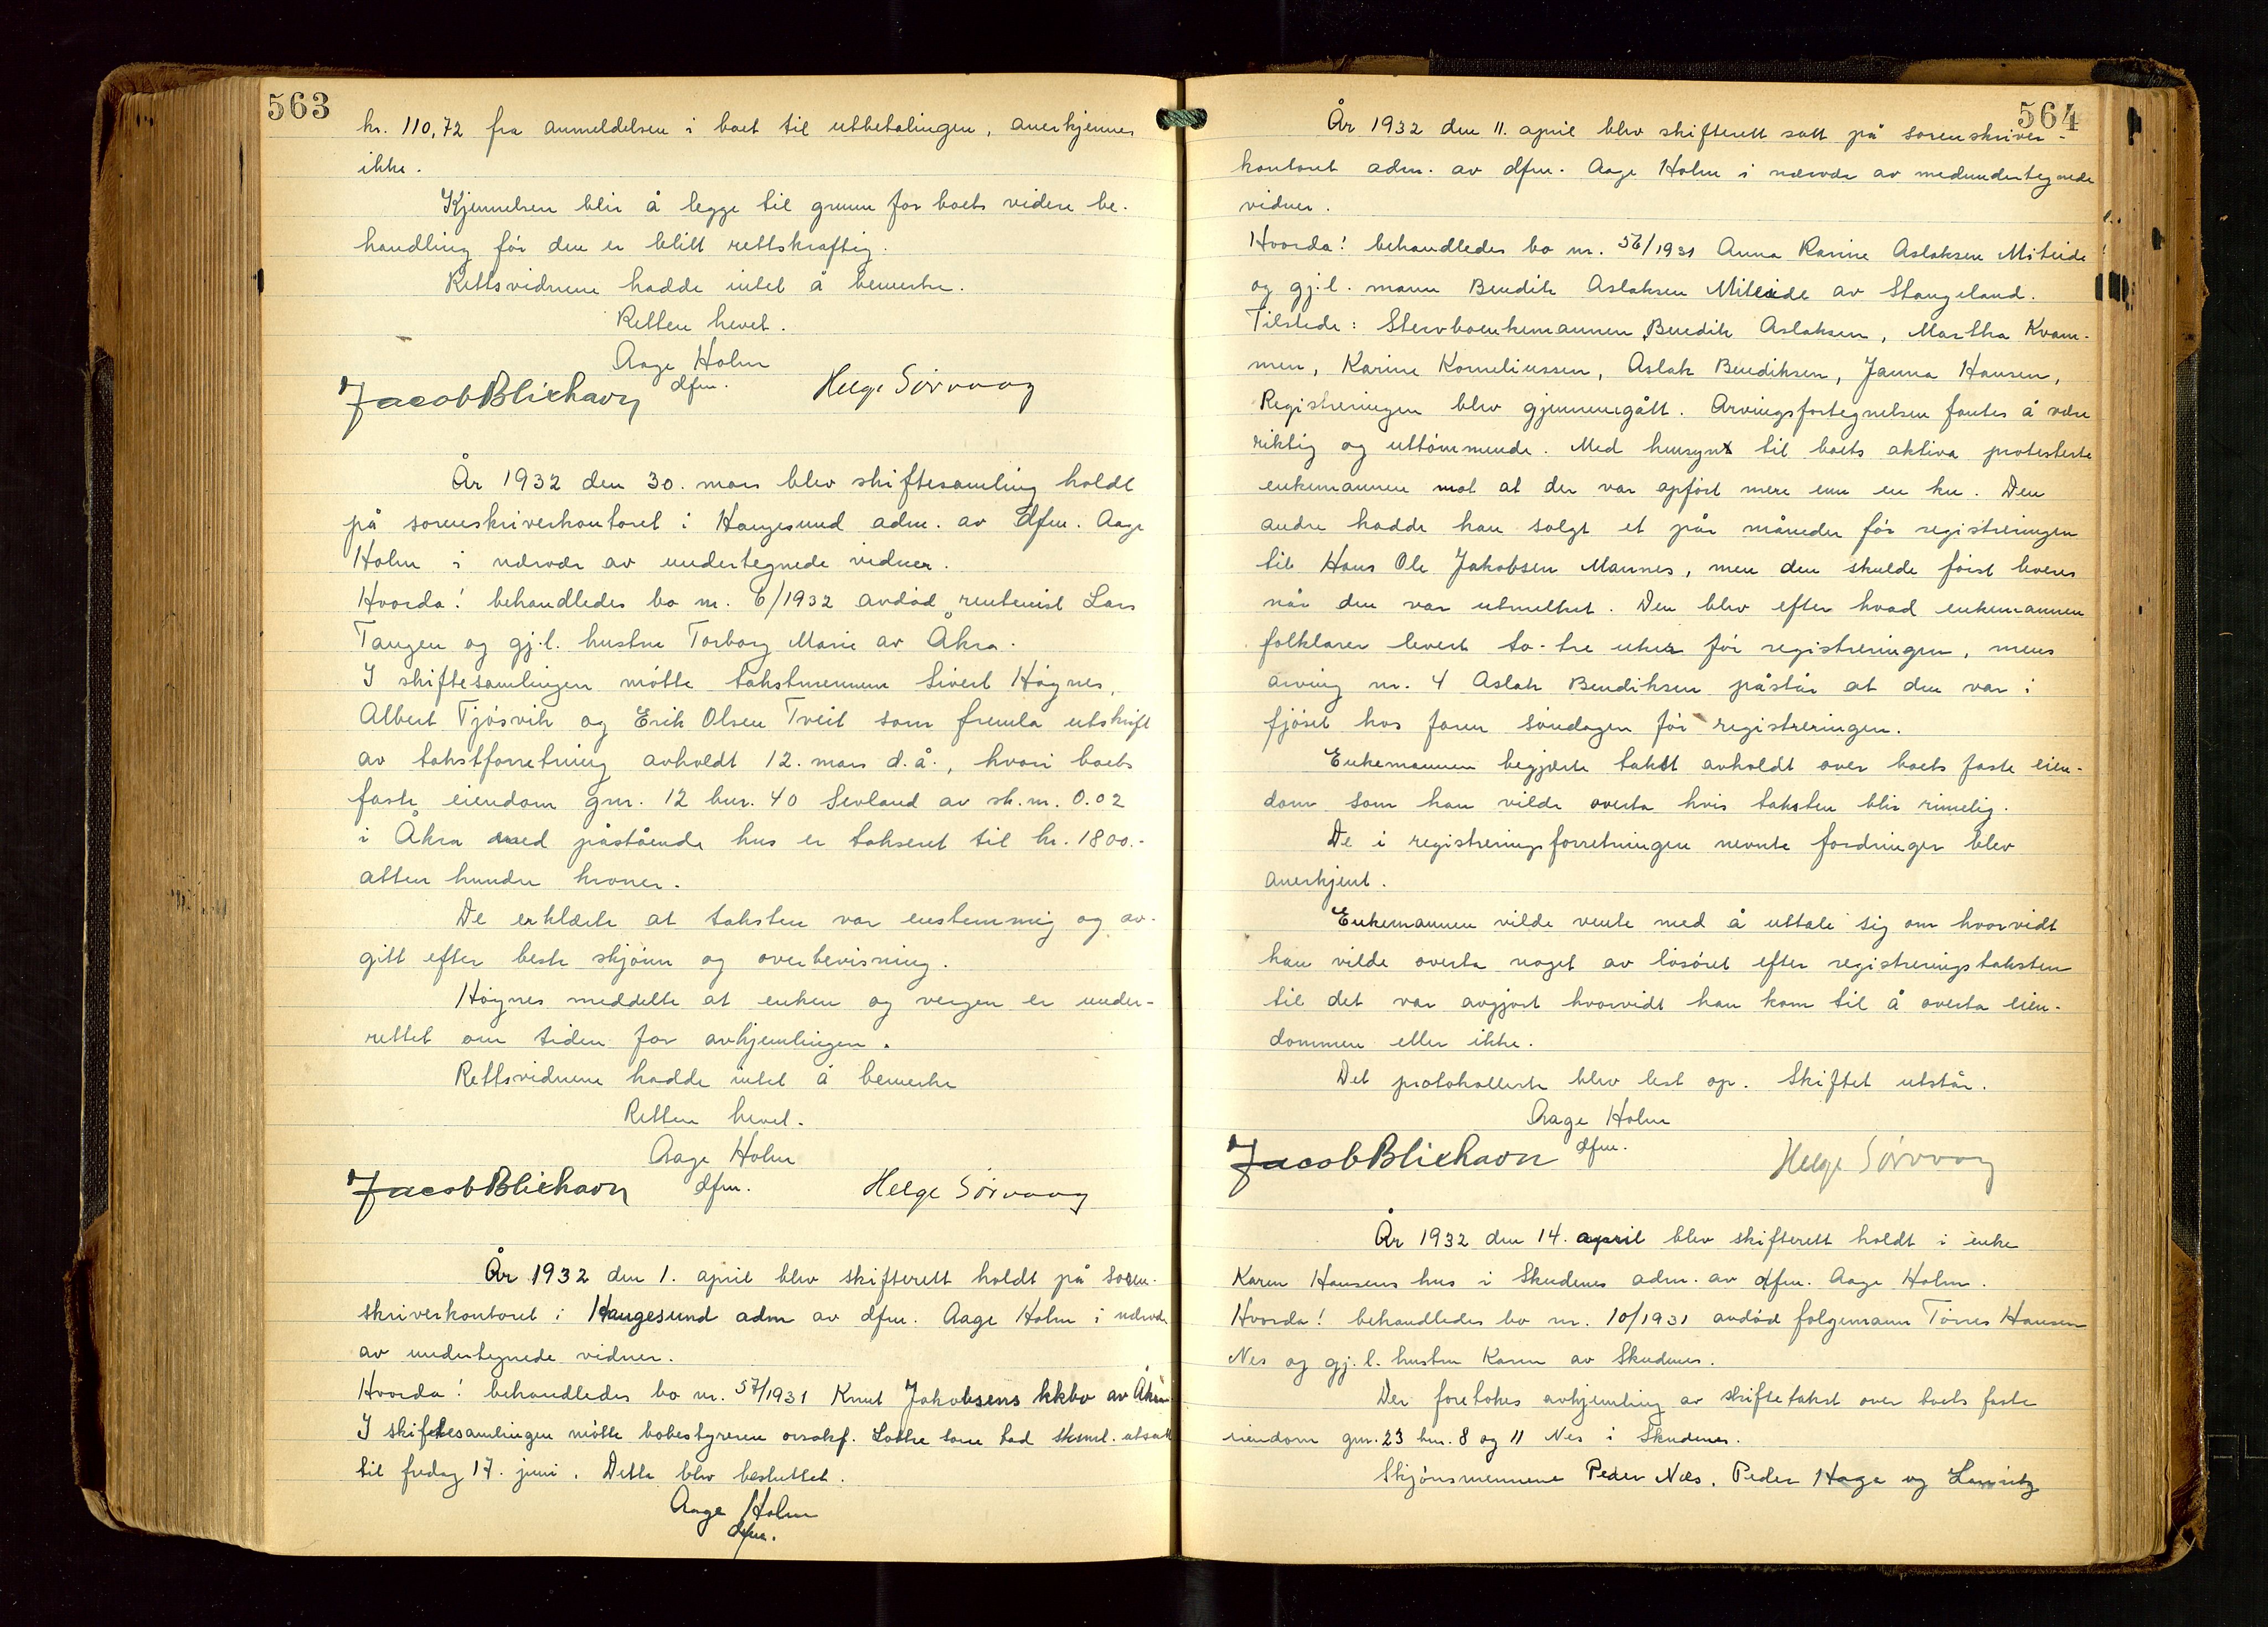 563
kr. 110,72 fra anmeldelsen i boet til utbetalingen, anerkjennes
ikke.
Kjennelsen blir å legge til grunn for boets videre be-
handling før den er blitt rettskraftig.
Rettsvidnene hadde intet å bemerke.
Retten hevet.
Aage Holm
dfm.
Jacob Blixhavn Helge Sörvaag
År 1932 den 30. mars blev skiftesamling holdt
på sorenskriverkontoret i Haugesund adm. av dfm. Aage
Holm i nærvær av undertegnede vidner.
Hvorda! behandledes bo nr. 6/1932 avdöd rentenist Lars
Tangen og gj.l. hustru Torborg Marie av Åkra.
I skiftesamlingen mötte takstmennene Sivert Högnes,
Albert Tjösvik og Erik Olsen Tveit som fremla utskrift
av takstforretning avholdt 12. mars d.å., hvori boets
faste eiendom gnr. 12 bnr. 40 Sevland av sk.m. 0.02
i Åkra med påstående hus er taksert til kr. 1800.-
atten hundre kroner.
De erklærte at taksten var enstemmig og av-
gitt efter beste skjönn og overbevisning.
Högnes meddelte at enken og vergen er under-
rettet om tiden for avhjemlingen.
Rettsvidnene hadde intet å bemerke
Retten hevet.
Aage Holm
dfm.
Jacob Blixhavn Helge Sörvaag
År 1932 den 1. april blev skifterett holdt på soren-
skriverkontoret i Haugesund adm av dfm. Aage Holm i nærvær
av undertegnede vidner.
Hvorda! behandledes bo nr. 57/1931 Knut Jakobsens kkbo av Åkra
I skiftesamlingen mötte bobestyreren orsakf. Lothe som bad sksml. utsatt
til fredag 17. juni. Dette blev besluttet.
Aage Holm
dfm.
564
År 1932 den 11. april blev skifterett satt på sorenskriver-
kontoret adm. av dfm. Aage Holm i nærvær av medundertegnede
vidner.
Hvorda! behandledes bo nr. 56/1931 Anna Karine Aslaksen Miteide
og gj.l. mann Bendik Aslaksen Miteide av Stangeland.
Tilstede: Stervboenkemannen Bendik Aslaksen, Martha Kvam-
men, Karine Korneliussen, Aslak Bendiksen, Janna Hansen,
Registreringen blev gjennemgått. Arvingsfortegnelsen fantes å være
riktig og uttömmende. Med hensyn til boets aktiva protesterte
enkemannen mot at der var opfört mere enn en ku. Den
andre hadde han solgt et pår måneder för registreringen
til Hans Ole Jakobsen Mannes, men den skulde först leveres
når den var utmelket. Den blev efter hvad enkemannen
folklarer levert to-tre uker för registreringen, mens
arving nr. 4 Aslak Bendiksen påstår at den var i
fjöset hos faren söndagen för registreringen.
Enkemannen begjærte takst avholdt over boets faste eien-
dom som han vilde overta hvis taksten blir rimelig.
De i registreringsforretningen nevnte fordringer blev
anerkjent.
Enkemannen vilde vente med å uttale sig om hvorvidt
han vilde overta noget av lösöret efter registreringstaksten
til det var avgjort hvorvidt han kom til å overta eien-
dommen eller ikke.
Det protokollerte blev lest op. Skiftet utstår.
Aage Holm
dfm.
Jacob Blixhavn Helge Sörvaag
År 1932 den 14. april blev skifterett holdt i enke
Karen Hansens hus i Skudenes adm. av dfm. Aage Holm.
Hvorda! behandledes bo nr. 10/1931 avdöd folgemann Törres Hansen
Nes og gj.l. hustru Karen av Skudenes.
Der foretokes avhjemling av skiftetakst over boets faste
eiendom gnr. 23 bnr. 8 og 11 Nes i Skudenes.
Skjönsmennene Peder Nes, Peder Hage og Lauritz